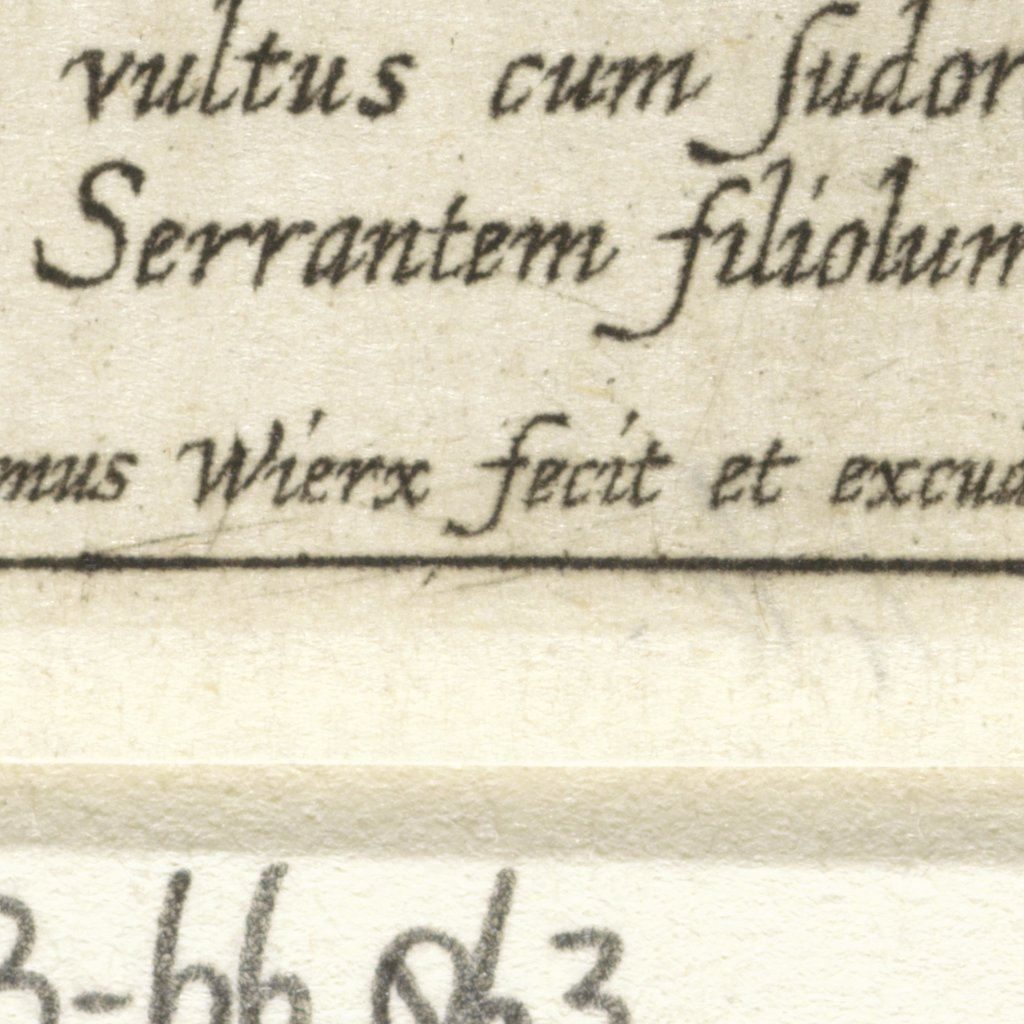 vultus cum ſudor
Serrantem filiolum
mus Wierx fecit et excud